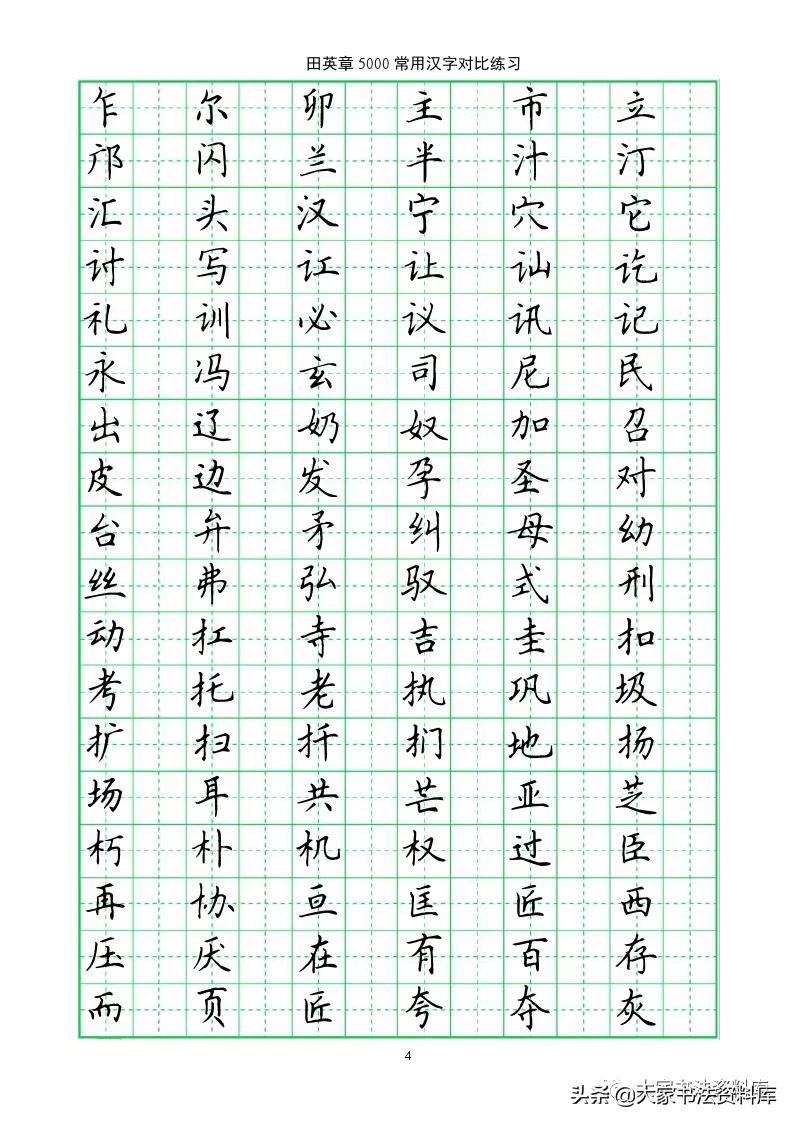 田英章5000常用汉字对比练习
乍 尔 卯 主 市 立
邝 闪 兰 半 汁 汀
汇 头 汉 宁 穴 它
讨 写 讧 让 讪 讫
礼 训 必 议 讯 记
永 冯 玄 司 尼 民
出 辽 奶 奴 加 召
皮 边 发 孕 圣 对
台 弁 矛 纠 母 幼
丝 弗 弘 驭 式 刑
动 扛 寺 吉 圭 扣
考 托 老 执 巩 圾
扩 扫 扦 扪 地 扬
场 耳 共 芒 亚 芝
朽 朴 机 权 过 臣
再 协 亘 匡 匠 西
压 厌 在 有 百 存
而 页 匠 夸 夺 灰
4
头条@大家书法资料库